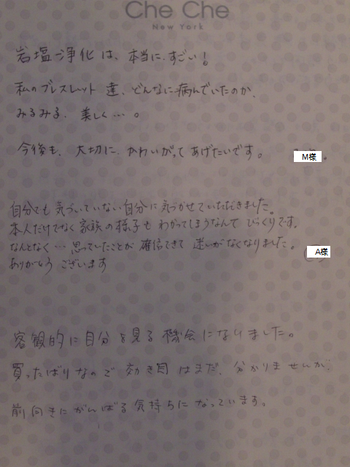 Che Che
New York
岩塩浄化は、本当にすごい!
私のブレスレット達、どんなに病んでいたのか、
みるみる、美しく…。
今後も、大切に、かわいがってあげたいです。 M様。
自分でも気づいていない自分に気づかせていただきました。
本人だけでなく家族の様子もわかってしまうなんてびっくりです。
なんとなく…思っていたことが確信できて迷いがなくなりました。 A様
ありがとうございます
客観的に自分を見る機会になりました。
買ったばかりなので効き目はまだ、分かりませんが、
前向きにがんばる気持ちになっています。